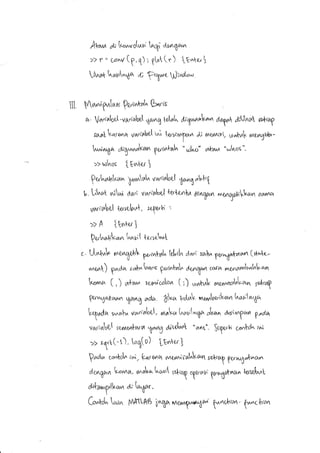 Akan di konvolusi lagi dengan
>> r = conv (p,q); plot (r) {Enter}
Lihat hasilnya di Figure Window
III Manipulasi Perintah Baris
a. Variabel-variabel yang telah digunakan dapat dilihat setiap
saat karena variabel ini tersimpan di memori, untuk mengeta-
huinya digunakan perintah "who" atau "whos".
>> whos {Enter}
Perhatikan jumlah variabel yang aktif
b. Lihat nilai dari variabel tertentu dengan mengetikkan nama
variabel tersebut, seperti :
>> A {Enter}
Perhatikan hasil tersebut
c. Untuk mengetik perintah lebih dari satu pernyataan (state-
ment) pada satu baris perintah dengan cara menambahkan
koma (,) atau semicolon (;) untuk memisahkan setiap
pernyataan yang ada. Jika tidak memberikan hasilnya
kepada suatu variabel, maka hasilnya akan disimpan pada
variabel sementara yang disebut "ans". Seperti contoh ini
>> sqrt(-1), log(0) {Enter}
Pada contoh ini, karena memisahkan setiap pernyataan
dengan koma, maka hasil setiap operasi pernyataan tersebut
ditampilkan di layar.
Contoh lain MATLAB juga mempunyai function-function